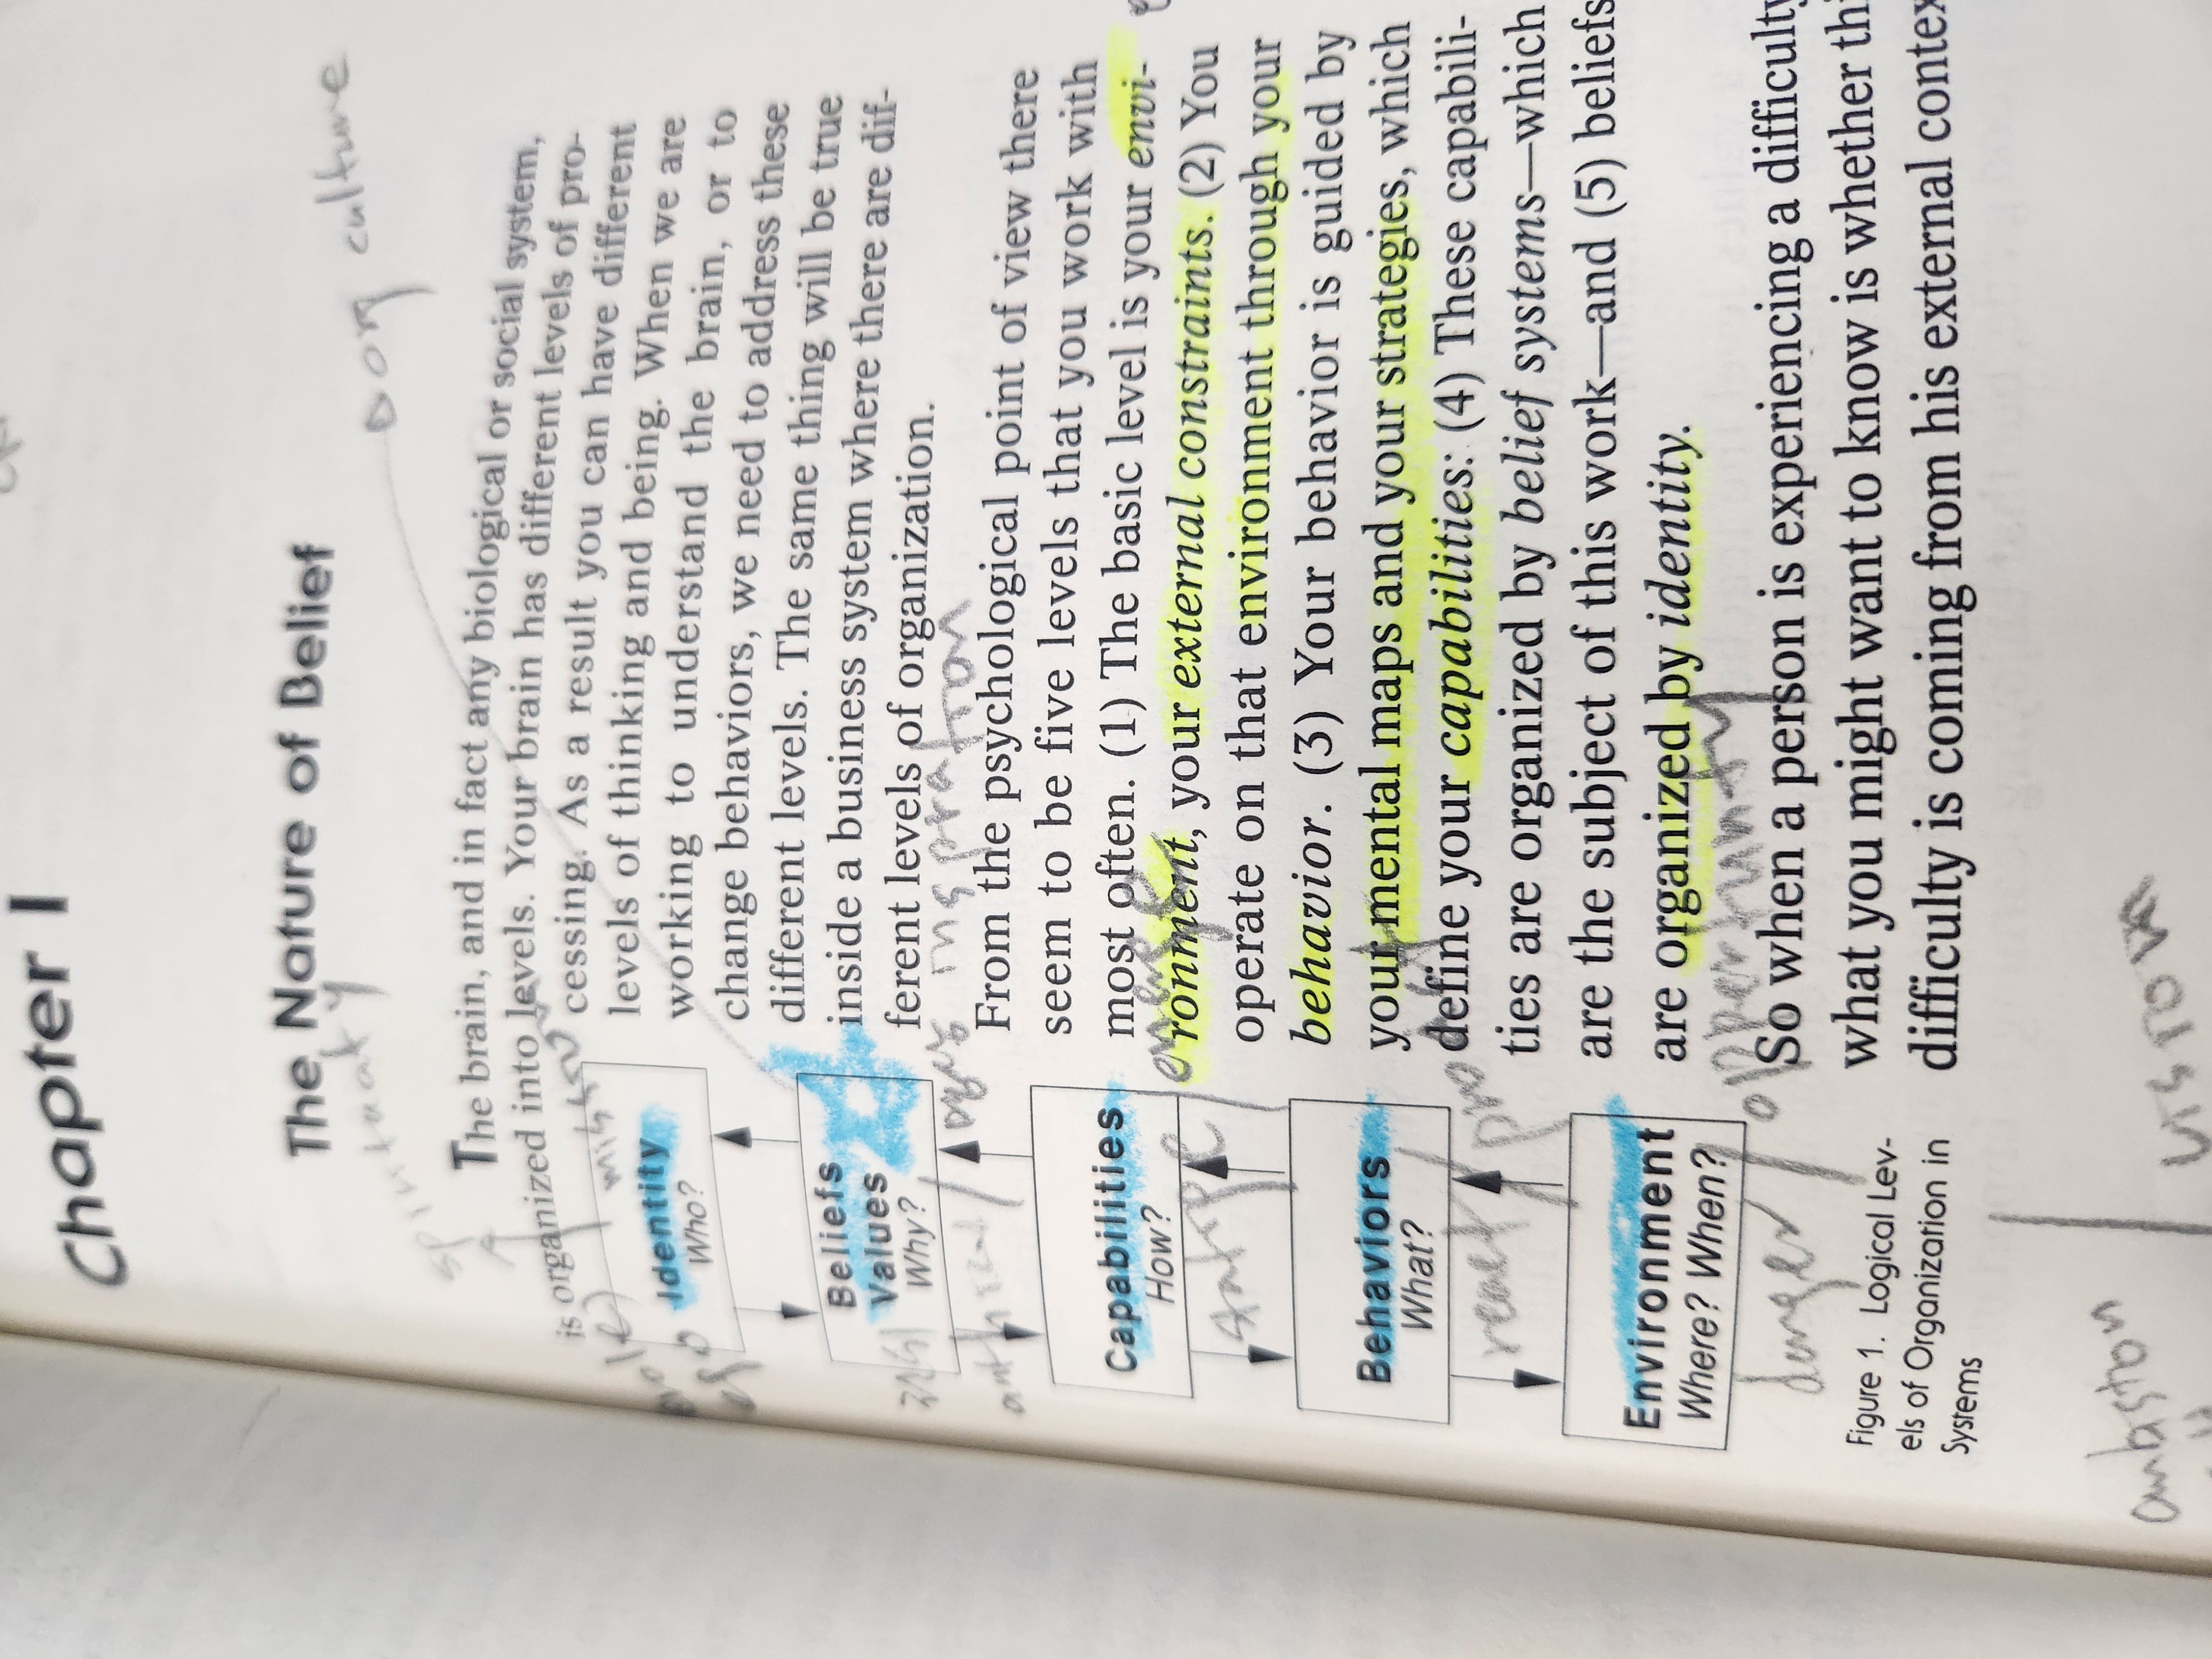 Chapter 1
The Nature of Belief
org culture
The brain, and in fact any biological or social system,
is organized into levels. Your brain has different levels of pro-
cessing. As a result you can have different
levels of thinking and being. When we are
working to understand the brain, or to
change behaviors, we need to address these
different levels. The same thing will be true
inside a business system where there are dif-
ferent levels of organization.
From the psychological point of view there
seem to be five levels that you work with
most often. (1) The basic level is your envi-
ronment, your external constraints. (2) You
operate on that environment through your
behavior. (3) Your behavior is guided by
your mental maps and your strategies, which
define your capabilities: (4) These capabili-
ties are organized by belief systems—which
are the subject of this work—and (5) beliefs
are organized by identity.
So when a person is experiencing a difficulty
what you might want to know is whether thi
difficulty is coming from his external contex
Identity
Who?
Beliefs
Values
Why?
Capabilities
How?
Behaviors
What?
Environment
Where? When?
danger / oppertunity
Figure 1. Logical Lev-
els of Organization in
Systems
vision